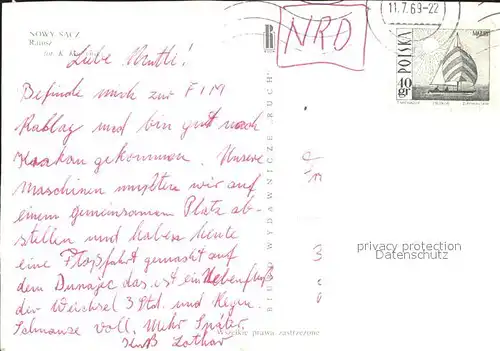 NOWY SĄCZ
Ratusz
fot. K.
11.7.69-22
NRD
POLSKA
40 gr
Liebe Mutti!
Befinde mich zur FIM
Rallay und bin gut nach
Krakau gekommen. Unsere
Maschinen mußten wir auf
einem gemeinsamen Platz ab-
stellen und haben heute
eine Floßfahrt gemacht auf
dem Dunajec das ist ein Nebenfluß
der Weichsel 3 Std. und Regen.
Schnauze voll. Mehr Später.
Kuß Lothar
BIURO WYDAWNICZE RUCH
Wszelkie prawa zastrzeżone
privacy protection
Datenschutz